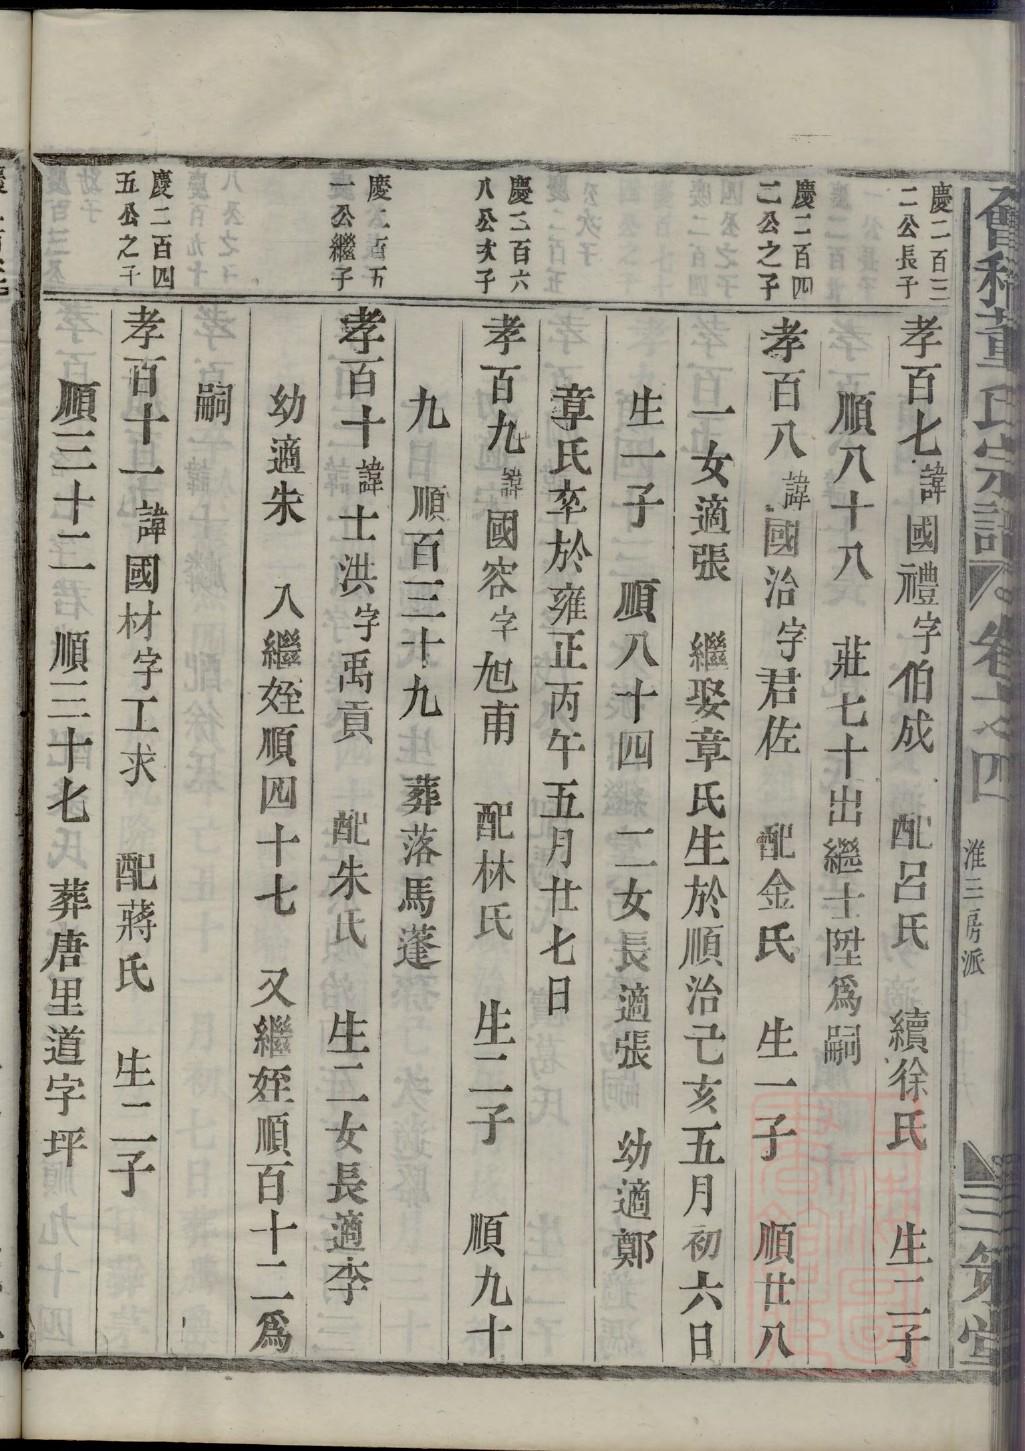 會稽董氏宗譜 卷之四 淮三房派 三策堂
慶二百三
二公長子
孝百七諱國禮字伯成 配呂氏 續徐氏 生二子
順八十八 莊七十出繼士陞為嗣
慶二百四
二公之子
孝百八諱國治字君佐 配金氏 生一子 順廿八
一女適張 繼娶章氏生於順治己亥五月初六日
生一子 順八十四 二女長適張 幼適鄭
章氏卒於雍正丙午五月廿七日
慶二百六
八公次子
孝百九諱國容字旭甫 配林氏 生二子 順九十
九 順百三十九 葬落馬蓬
慶二百五
一公繼子
孝百十諱士洪字禹貢 配朱氏 生二女長適李
幼適朱 入繼姪順四十七 又繼姪順百十二為
嗣
慶二百四
五公之子
孝百十一諱國材字工求 配蔣氏 生二子
順三十二 順三十七 葬唐里道字坪